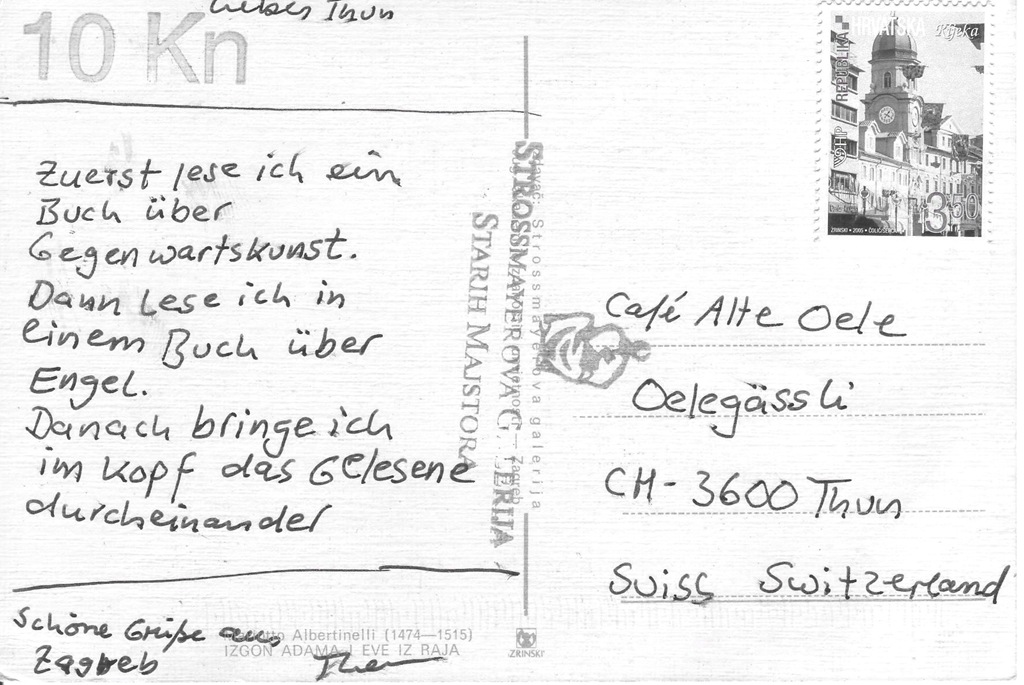 10 Kn
Liebes Thun
Zuerst lese ich ein
Buch über
Gegenwartskunst.
Dann lese ich in
einem Buch über
Engel.
Danach bringe ich
im Kopf das Gelesene
durcheinander
Schöne Grüße aus
Zagreb
Albertinelli (1474—1515)
IZGON ADAMA I EVE IZ RAJA
STROSSMAYEROVA G ERIJA
STARIH MAJSTORA
Strossmayerova galerija
Zagreb
ZRINSKI
REPUBLIKA
HRVATSKA
Rijeka
HP
3.50
ZRINSKI • 2005 •
Café Alte Oele
Oelegässli
CH-3600 Thun
Suiss Switzerland